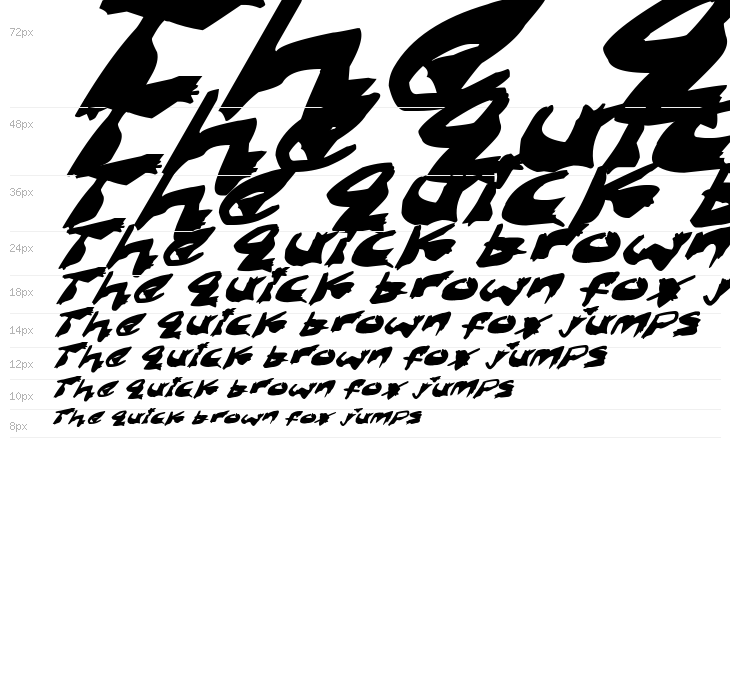 72px The q
48px The quic
36px The quick b
24px The quick brown
18px The quick brown fox j
14px The quick brown fox jumps
12px The quick brown fox jumps
10px The quick brown fox jumps
8px The quick brown fox jumps